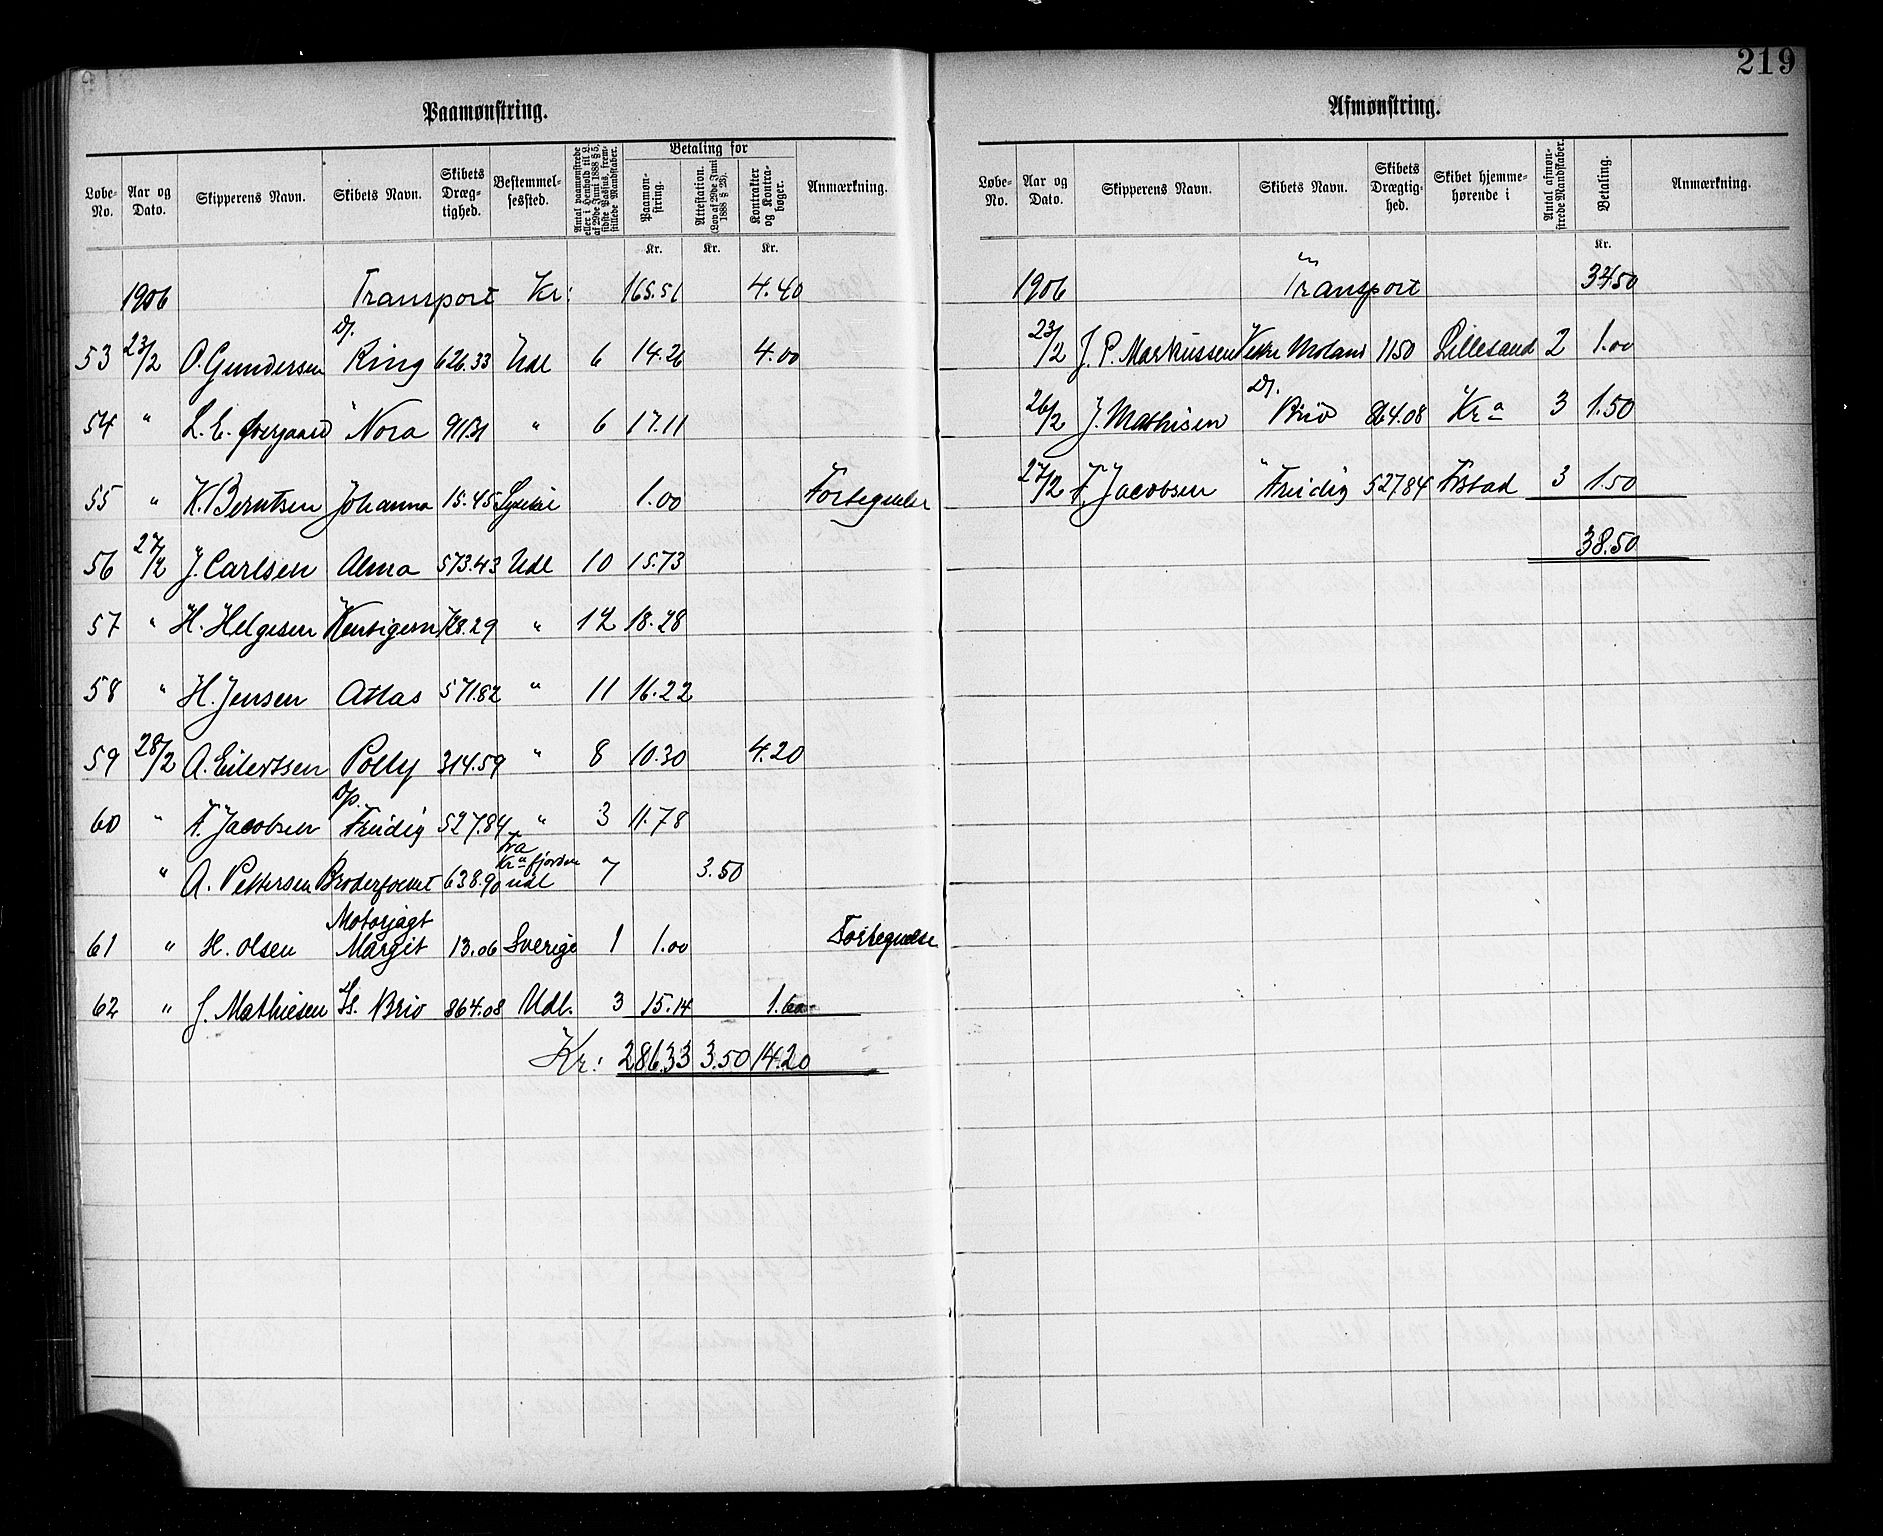 219
Paamønstring.
Løbe-No. Aar og Dato. Skipperens Navn. Skibets Navn. Skibets Dræg-tighed. Bestemmel-sessted. Antal paamønstrede eller i Henhold til L. af 29de Juni 1888 § 5, sidste Passus, frem-stillede Mandskaber. Betaling for Paamøn-string. Attestation. (Lov af 29de Juni 1888 § 23). Kontrakter og Kontra-bøger. Anmærkning.
Kr. Kr. Kr.
1906 Transport Kr: 165.51 4.40
53 23/2 O. Gundersen Ds. Ring 626.33 Udl 6 14.26 4.00
54 " L. E. Øvergaard " Nora 911.31 " 6 17.11
55 " K. Berntsen Johanna 15.45 1.00 Fortegnelse
56 27/2 J. Carlsen Alma 573.43 Udl 10 15.73
57 " H. Helgesen Kentigern 748.29 " 12 18.28
58 " H. Jensen Atlas 571.82 " 11 16.22
59 28/2 A. Eilertsen Polly 314.59 " 8 10.30 4.20
60 " F. Jacobsen Ds. Freidig 527.84 " 3 11.78
" A. Pettersen Broderfolket 638.90 fra Kra fjorden udl 7 3.50
61 " H. Olsen Motorjagt Margit 13.06 Sverige 1 1.00 Fortegnelse
62 " J. Mathiesen Ds. Brio 864.08 Udl. 3 15.14 1.60
Kr: 286.33 3.50 14.20
Afmønstring.
Løbe-No. Aar og Dato. Skipperens Navn. Skibets Navn. Skibets Drægtig-hed. Skibet hjemme-hørende i Antal afmøn-strede Mandskaber. Betaling. Anmærkning.
Kr.
1906 Transport 34.50
23/2 J. P. Markussen Vestre Moland 1150 Lillesand 2 1.00
26/2 J. Mathisen Ds. Brio 864.08 Kra 3 1.50
27/2 F. Jacobsen " Freidig 527.84 Fstad 3 1.50
38.50